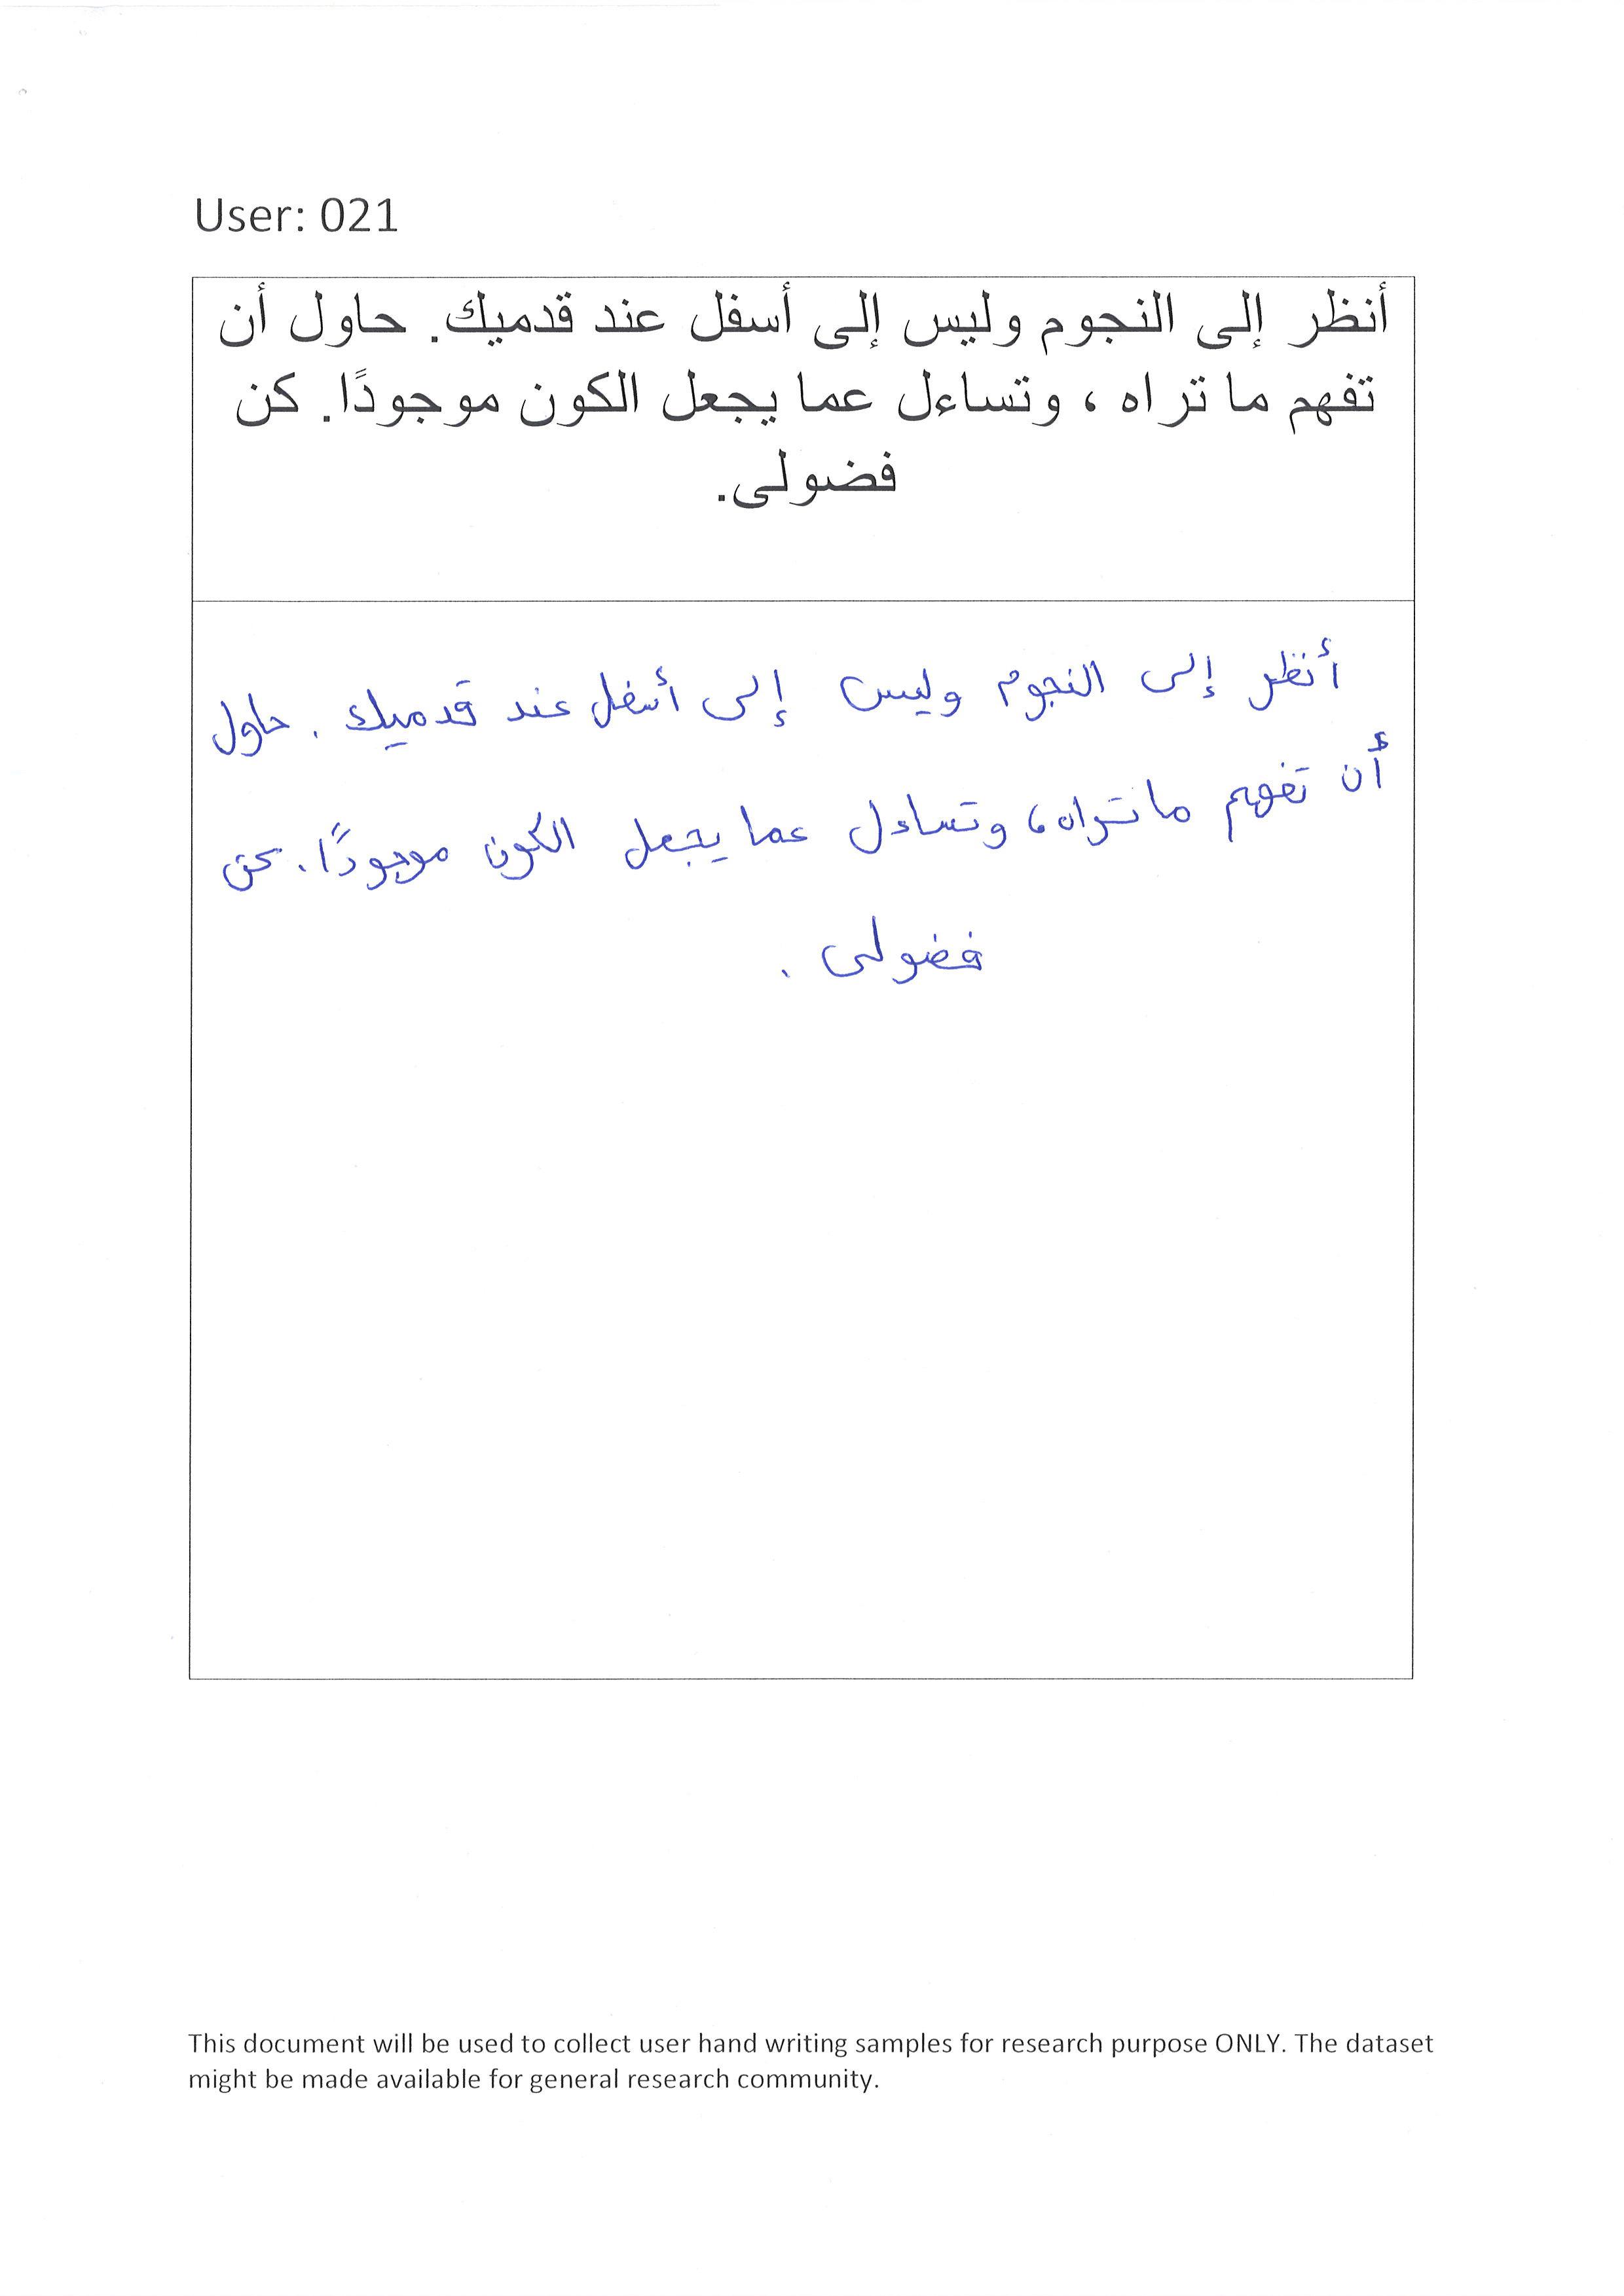 User: 021
أنظر إلى النجوم وليس إلى أسفل عند قدميك. حاول أن
تفهم ما تراه ، وتساءل عما يجعل الكون موجودًا. كن
فضولى.
أنظر إلى النجوم وليس إلى أسفل عند قدميك . حاول
أن تفهم ما تراه ، وتساءل عما يجعل الكون موجودًا . كن
فضولى .
This document will be used to collect user hand writing samples for research purpose ONLY. The dataset
might be made available for general research community.